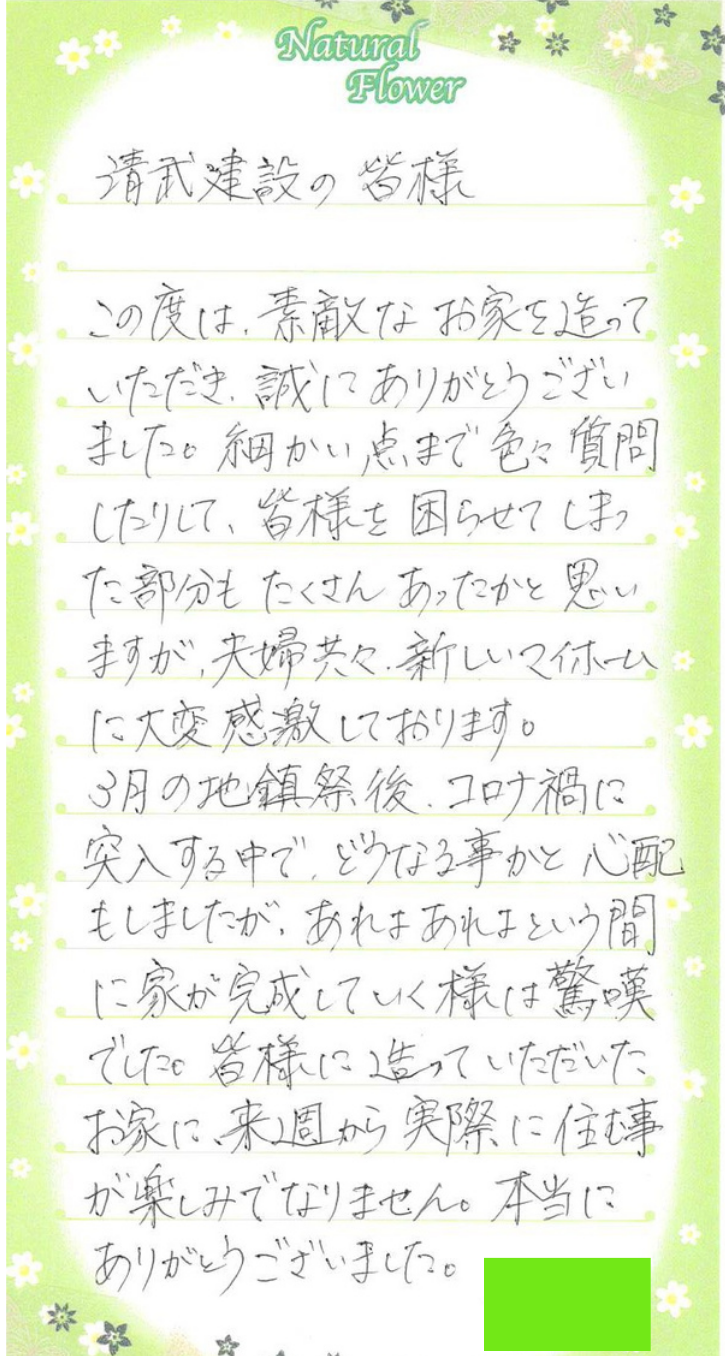 Natural
Flower
清武建設の皆様
この度は、素敵なお家を造って
いただき、誠にありがとうござい
ました。細かい点まで色々質問
したりして、皆様を困らせてしまっ
た部分もたくさんあったかと思い
ますが、夫婦共々、新しいマイホーム
に大変感激しております。
3月の地鎮祭後、コロナ禍に
突入する中で、どうなる事かと心配
もしましたが、あれよあれよという間
に家が完成していく様は驚嘆
でした。皆様に造っていただいた
お家に、来週から実際に住む事
が楽しみでなりません。本当に
ありがとうございました。